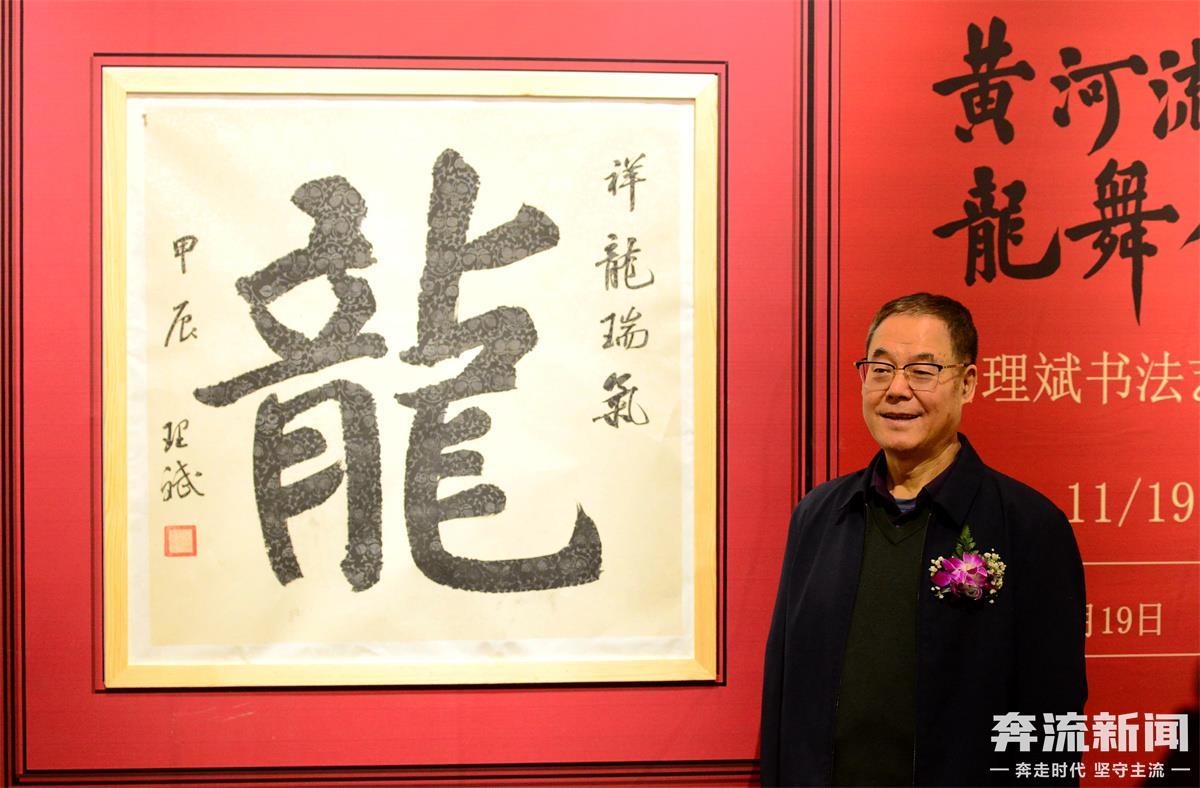 祥龍瑞氣
龍
甲辰
理斌
黄河流
龍舞
理斌书法艺
11/19
月19日
奔流新闻
奔走时代 坚守主流